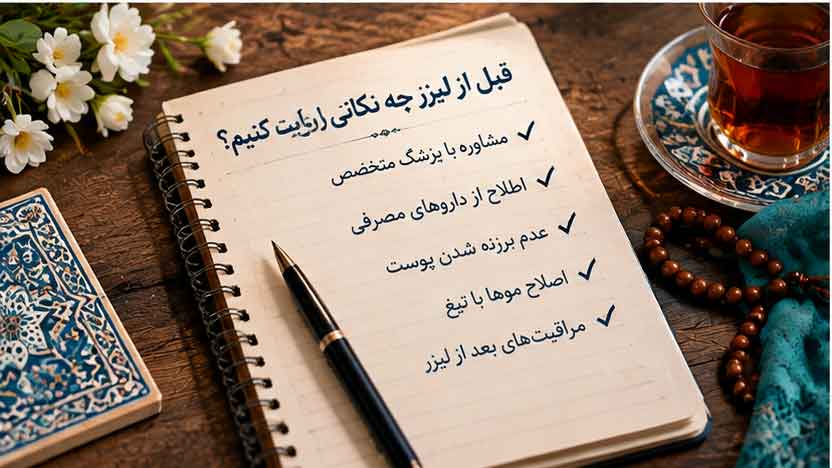 قبل از لیزز جه نکانی رایت کنیم؟
مشاوره با پزشگ متخضص
اطلاح از داروهای مصرفی
عدم برزنه شدن پوست
اصلاح موها با تیغ
مراقیت‌های بعد از لیزر